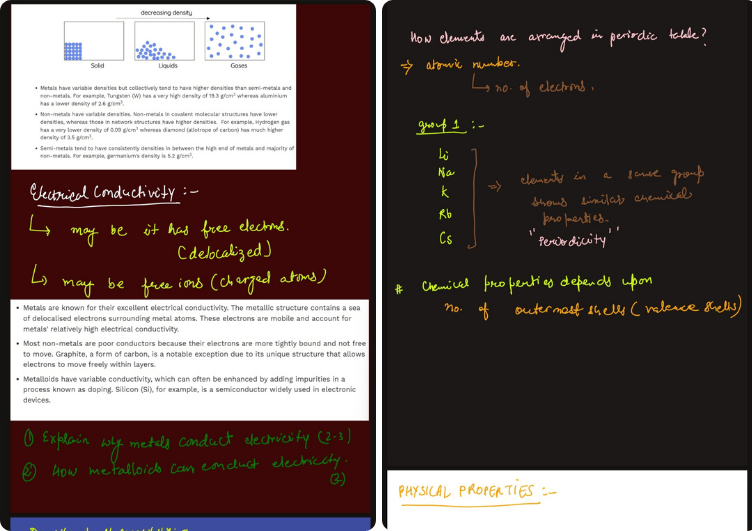 decreasing density
Solid
Liquids
Gases
• Metals have variable densities but collectively tend to have higher densities than semi-metals and
non-metals. For example, Tungsten (W) has a very high density of 19.3 g/cm³ whereas aluminium
has a lower density of 2.6 g/cm³.
• Non-metals have variable densities. Non-metals in covalent molecular structures have lower
densities, whereas those in network structures have higher densities. For example, Hydrogen gas
has a very lower density of 0.09 g/cm³ whereas diamond (allotrope of carbon) has much higher
density of 3.5 g/cm³.
• Semi-metals tend to have consistently densities in between the high end of metals and majority of
non-metals. For example, germanium's density is 5.2 g/cm³.
Electrical Conductivity :-
↳ may be it has free electrons.
(delocalized)
↳ may be free ions (charged atoms)
• Metals are known for their excellent electrical conductivity. The metallic structure contains a sea
of delocalised electrons surrounding metal atoms. These electrons are mobile and account for
metals' relatively high electrical conductivity.
• Most non-metals are poor conductors because their electrons are more tightly bound and not free
to move. Graphite, a form of carbon, is a notable exception due to its unique structure that allows
electrons to move freely within layers.
• Metalloids have variable conductivity, which can often be enhanced by adding impurities in a
process known as doping. Silicon (Si), for example, is a semiconductor widely used in electronic
devices.
① Explain why metals conduct electricity (2-3)
② How metalloids can conduct electricity.
(3)
How elements are arranged in periodic table?
⇒ atomic number.
↳ no. of electrons.
group 1 :-
Li
Na
K
Rb
Cs
⇒ elements in a same group
shows similar chemical
properties.
"Periodicity"
# Chemical properties depends upon
no. of outermost shells (valence shells)
PHYSICAL PROPERTIES :-